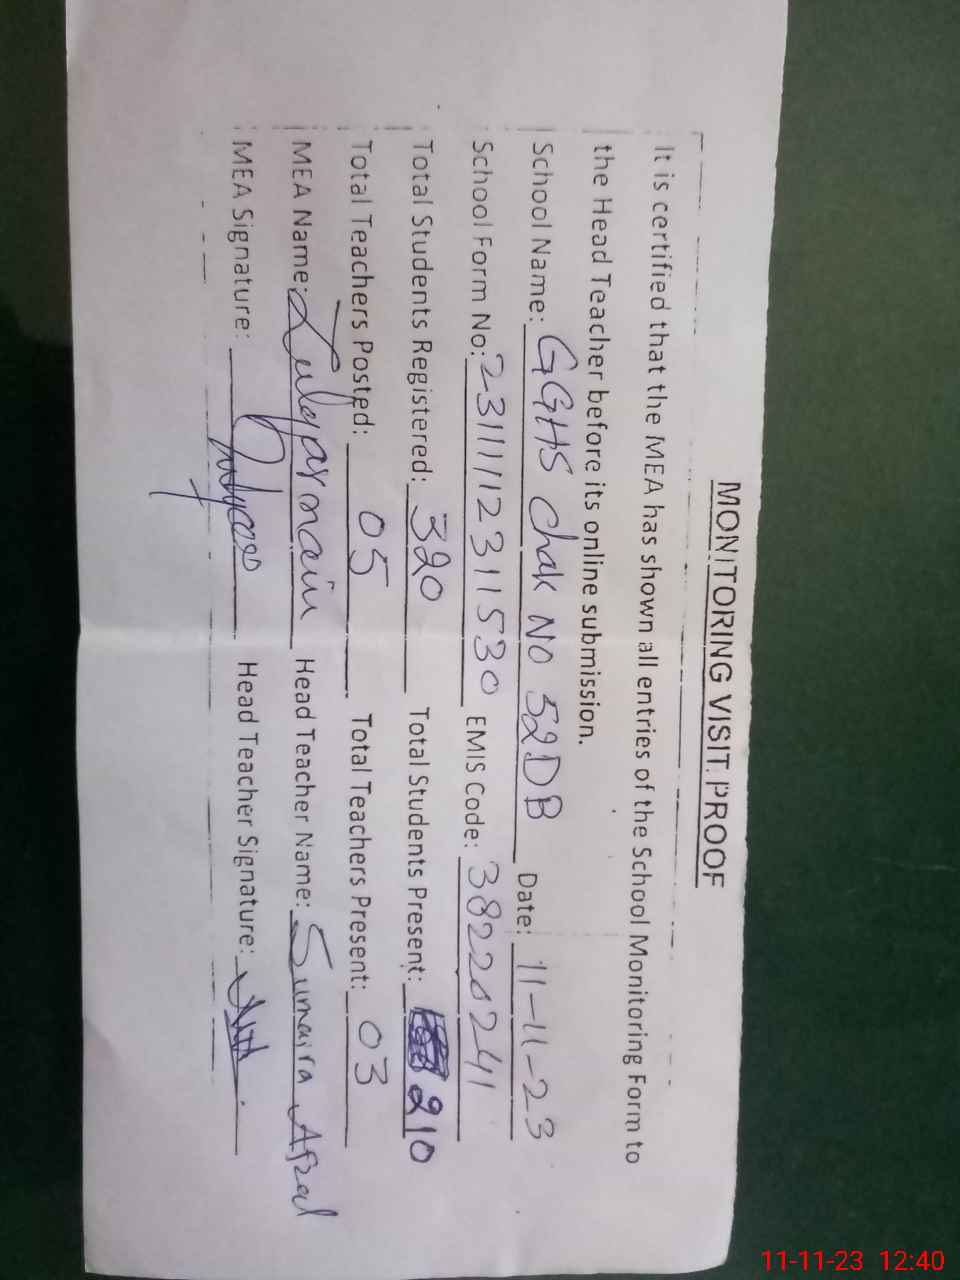 MONITORING VISIT PROOF
It is certified that the MEA has shown all entries of the School Monitoring Form to
the Head Teacher before its online submission.
School Name: GGHS Chak NO 52DB Date: 11-11-23
School Form No: EMIS Code: 38220241
Total Students Registered: 320 Total Students Present: 210
Total Teachers Posted: 05 Total Teachers Present: 03
MEA Name: Head Teacher Name: Sumaira Afzal
MEA Signature: Head Teacher Signature:
11-11-23 12:40